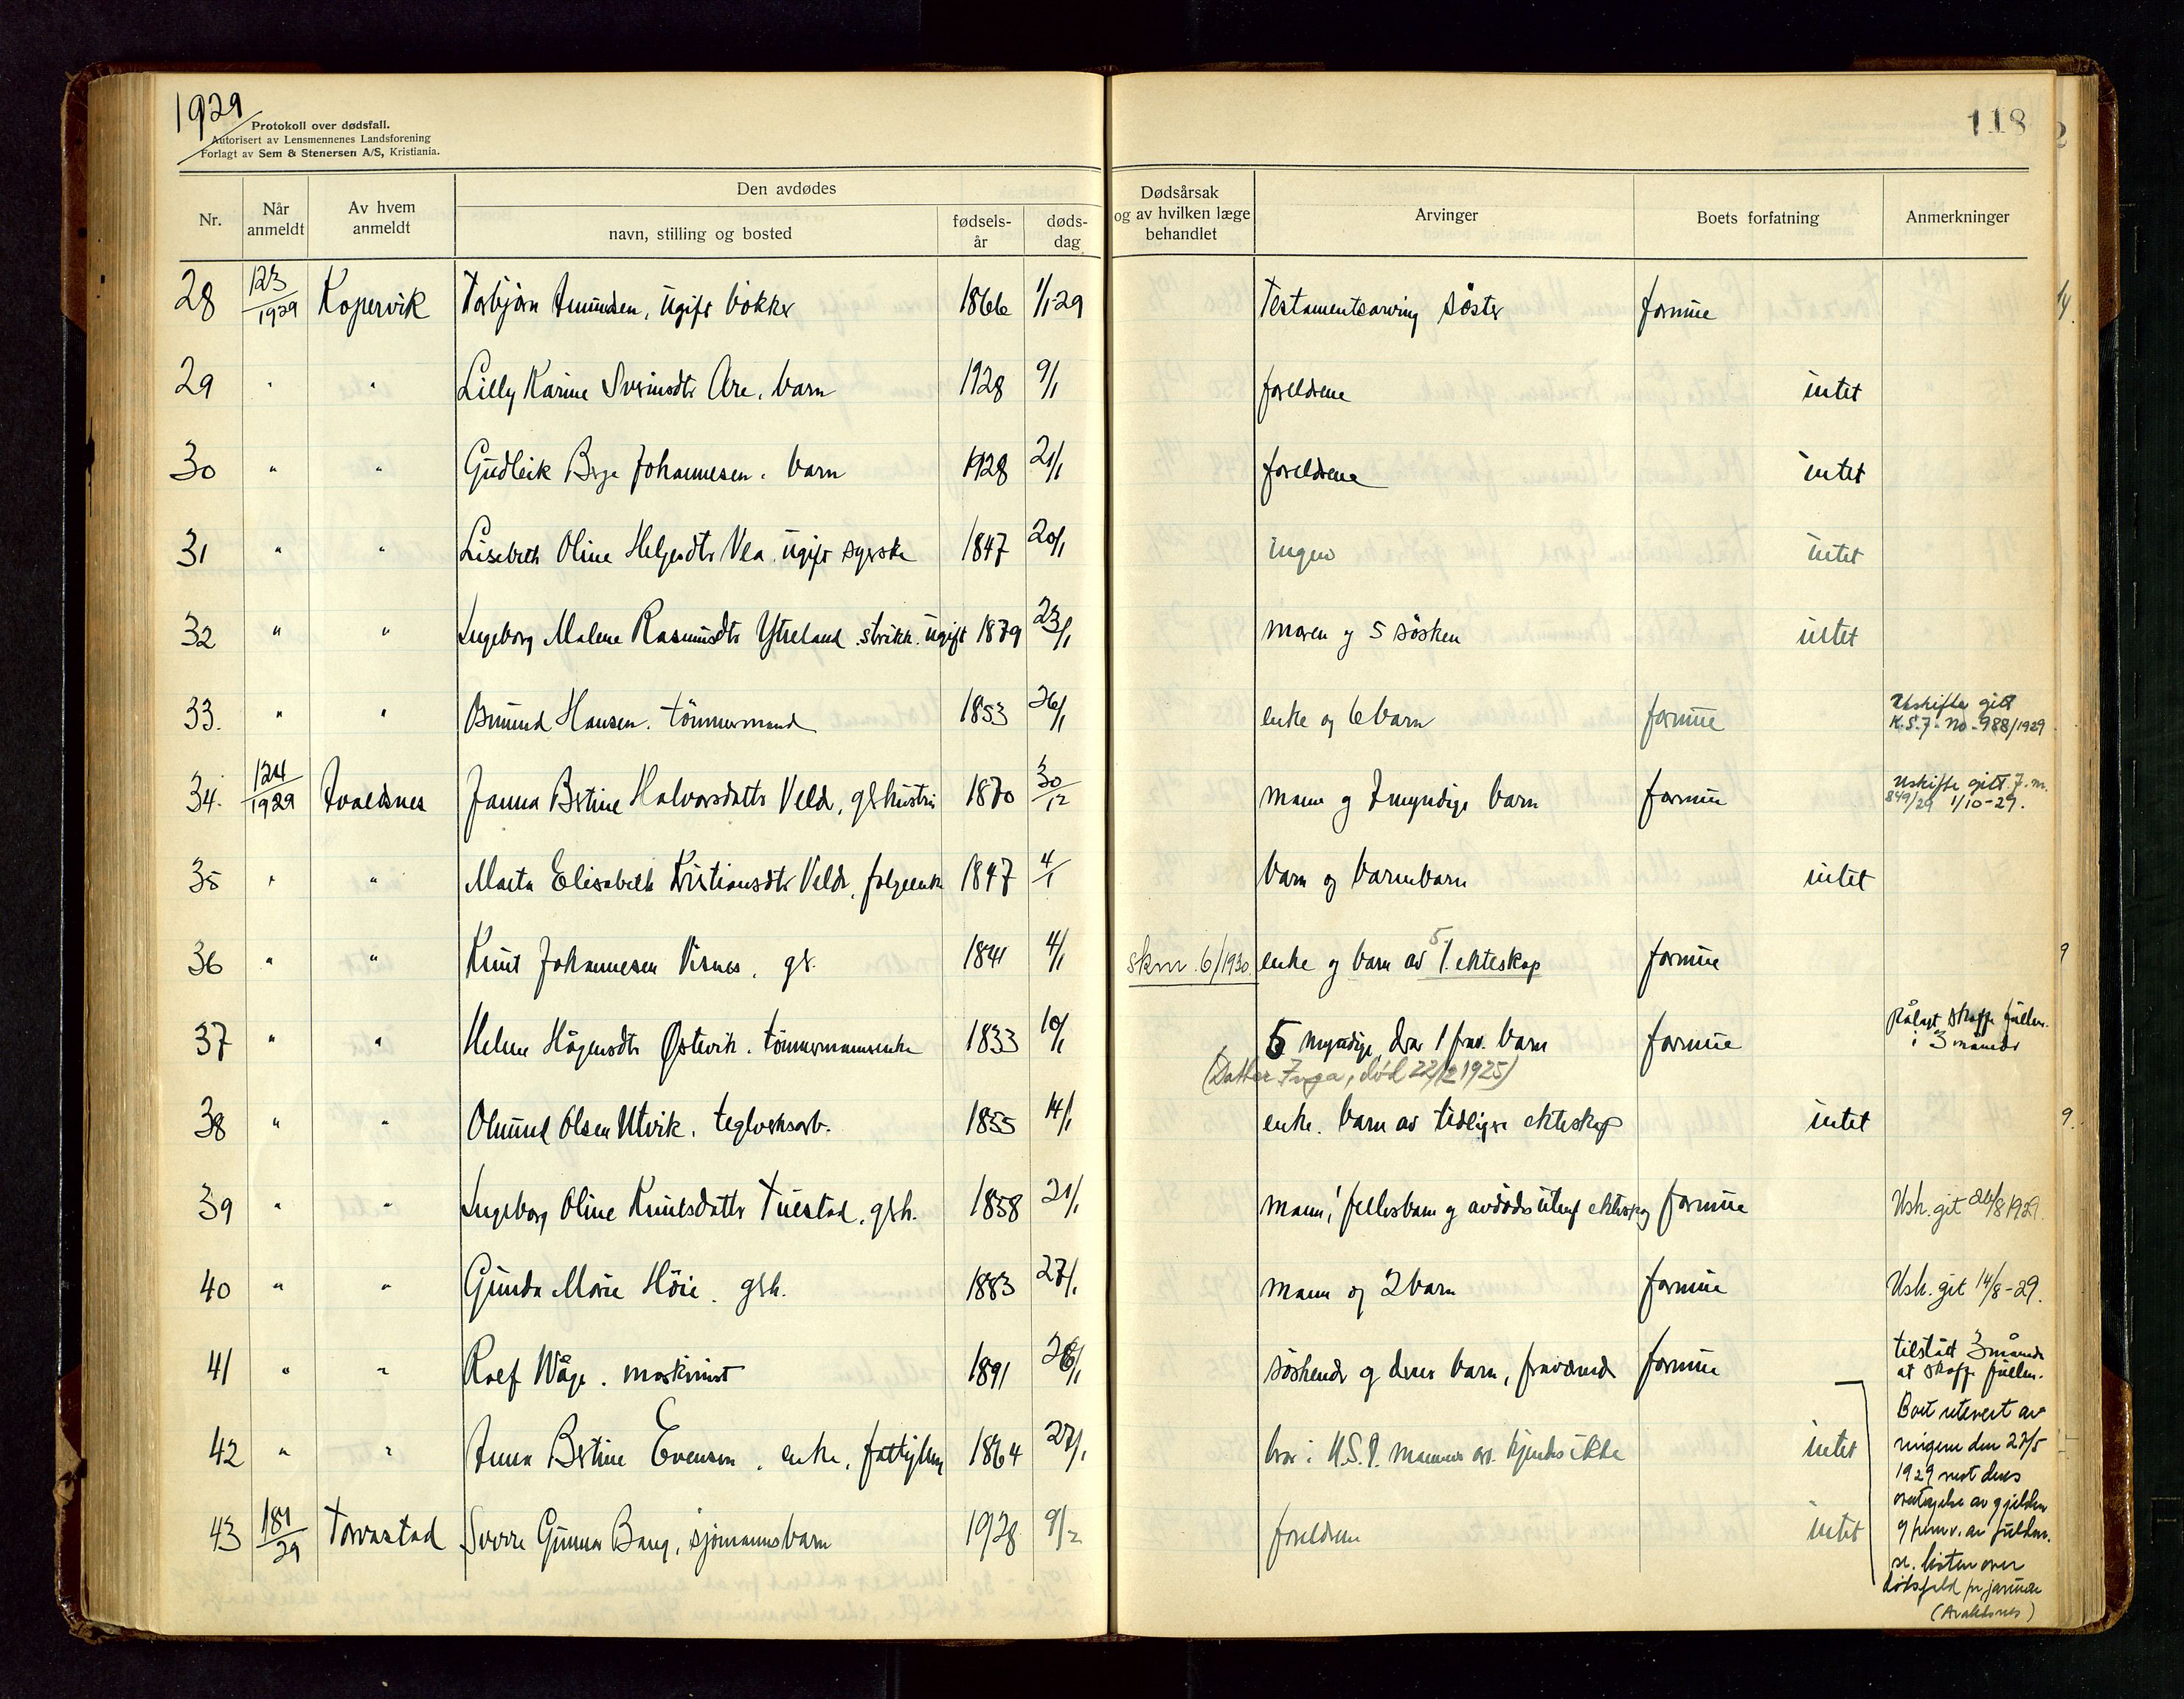 1929
Protokoll over dødsfall.
Autorisert av Lensmennenes Landsforening
Forlagt av Sem & Stenersen A/S, Kristiania.
118
Nr.
Når anmeldt
Av hvem anmeldt
Den avdødes
navn, stilling og bosted
fødsels-år
døds-dag
Dødsårsak og av hvilken læge behandlet
Arvinger
Boets forfatning
Anmerkninger
28 123/1929 Kopervik Torbjørn Amundsen, ugift bøkker 1866 1/1 29 Testamentsarving søster formue
29 " " Lilly Karine Sveinsdtr Are, barn 1928 9/1 foreldrene intet
30 " " Gudleik Johannesen. barn 1928 21/1 foreldrene intet
31 " " Lisebeth Oline Helgesdtr Vea. ugift syerske 1847 20/1 ingen intet
32 " " Ingeborg Malene Rasmusdtr Ytreland. strikk. ugift 1879 23/1 moren og 5 søsken intet
33. " " Hansen. tømmermand 1853 26/1 enke og 6 barn formue Uskifte gitt
K.S.7. No. 988/1929
34. 124/1929 Avaldsnes Janna Bertine Halvorsdatter Velde, gbhustru 1870 30/12 mann og 7 myndige barn formue Uskifte gitt J.no.
849/29 1/10-29.
35 " " Marta Elisabeth Kristiansdtr Velde, folgeenke 1847 4/1 barn og barnebarn intet
36 " " Knut Johannesen Visnes. gb. 1841 4/1 skm. 6/1930 enke og barn av 1. ekteskap formue
5
37 " " Helene Hågensdtr Østevik. tømmermannsenke 1833 10/1 5 myndige, derav 1 frav. barn formue Pålagt skaffe fullm.
i 3 måneder
(Datter Inga, død 22/12 1925)
38 " " Olsen Utvik. teglverksarb. 1855 14/1 enke. barn av tidligere ekteskap intet
39 " " Ingeborg Oline Knutsdatter Tuestad, gbh. 1858 21/1 mann, fellesbarn og avdødes utenf ekteskap formue Usk. git 26/8 1929.
40 " " Gunda Marie Höie. gbh. 1883 27/1 mann og 2 barn formue Usk. git 14/8-29.
41 " " Rolf Våge. maskinist 1891 26/1 søskende og deres barn, fraværende formue tilstått 3 måneder
at skaffe fullm.
42 " " Anna Bertine Evensen. enke, 1864 27/1 bror i U.S.A. mannens arv. kjendes ikke intet
43 181/29 Torvastad Sverre Gunnar Bang, sjømannsbarn 1928 9/2 foreldrene intet
Boet utlevert
den 27/5
1929 mot deres
overtagelse av gjelden
listen over
dødsfald pr januar
(Avaldsnes)